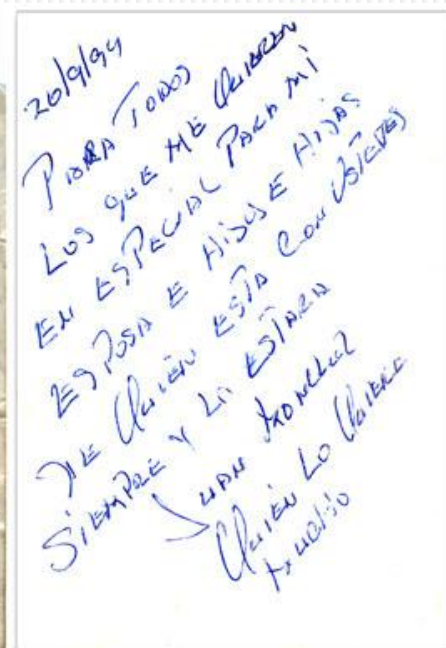 26/9/94
PARA TODOS
LOS QUE ME QUIEREN
EN ESPECIAL PARA MI
ESPOSA E HIJOS E HIJAS
DE QUIÉN ESTA CON USTEDES
SIEMPRE Y LO ESTARA
JUAN
QUIÉN LO QUIERE
MUCHO